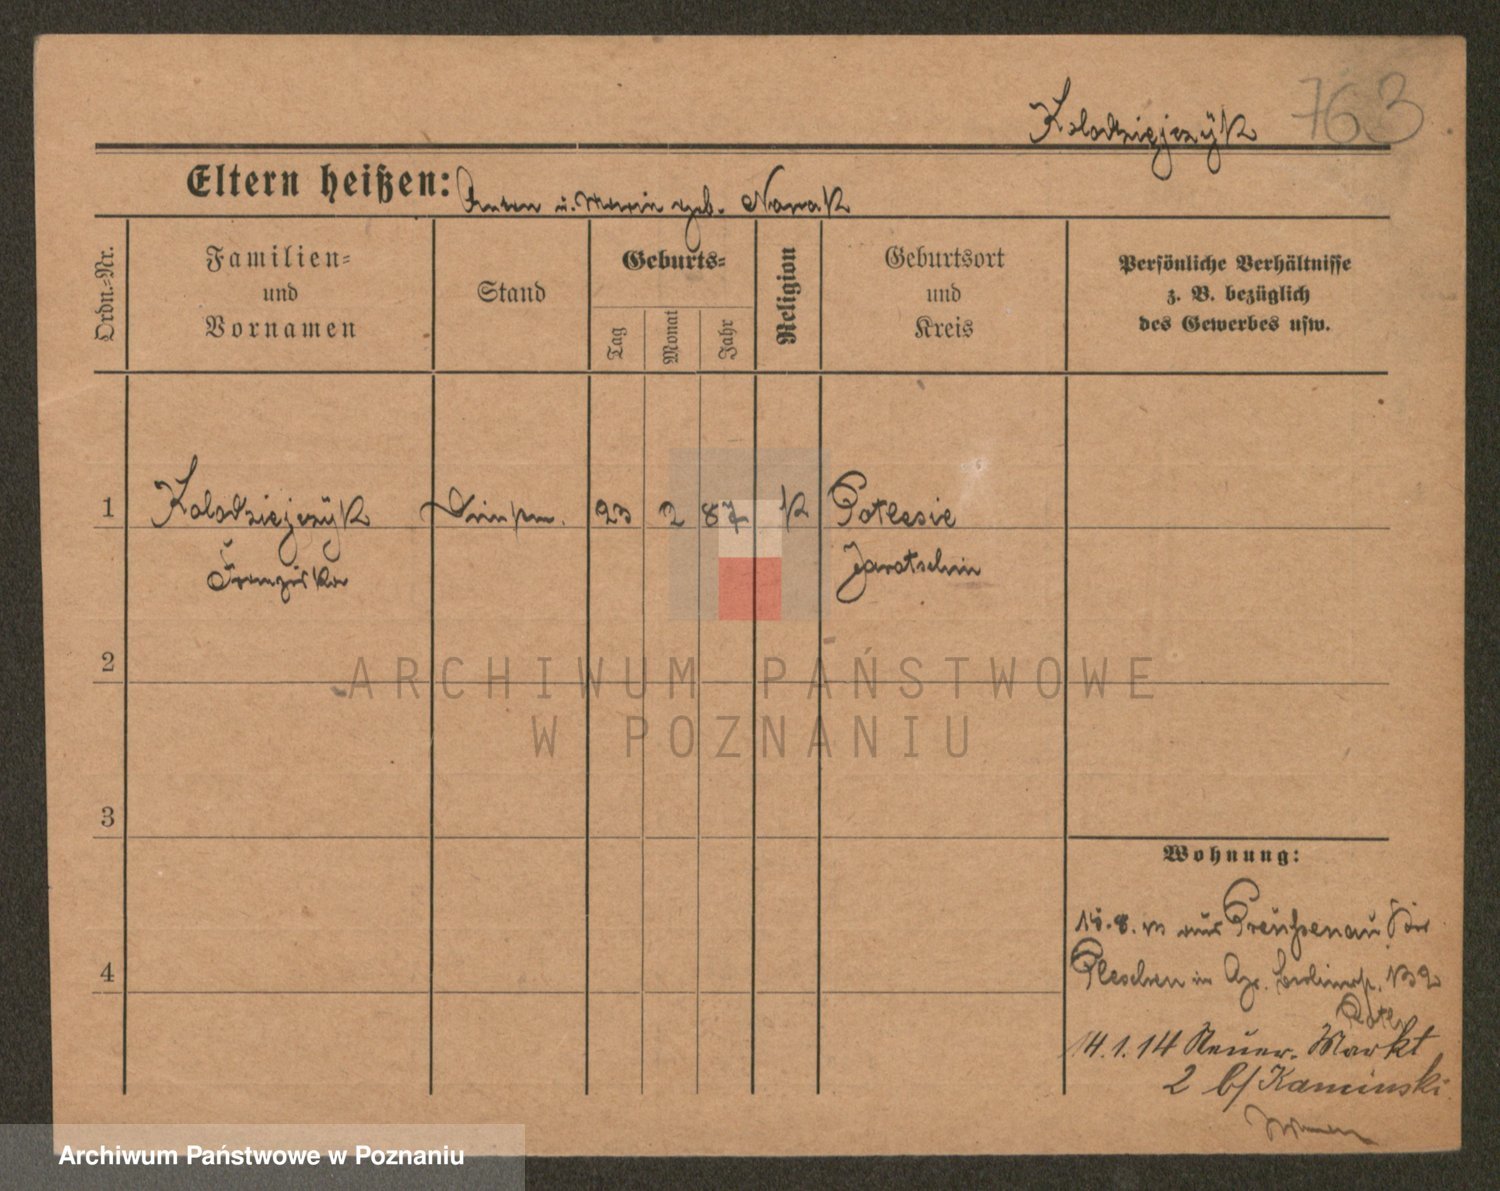 Kolodziejczÿk 763
Eltern heißen: Anton u. Marie geb. Nowak
Ordn.-Nr.
Familien-
und
Vornamen
Stand
Geburts-
Tag
Monat
Jahr
Religion
Geburtsort
und
Kreis
Persönliche Verhältnisse
z. B. bezüglich
des Gewerbes usw.
1 Kolodziejczÿk 23 2 87 K Potlesie
Franziska Jarotschin
2
ARCHIWUM PAŃSTWOWE
W POZNANIU
3
Wohnung:
15.8. aus Preußenau
Pleschen in
4
14.1.14 Neuer. Markt
2 b/ Kaminski
Archiwum Państwowe w Poznaniu